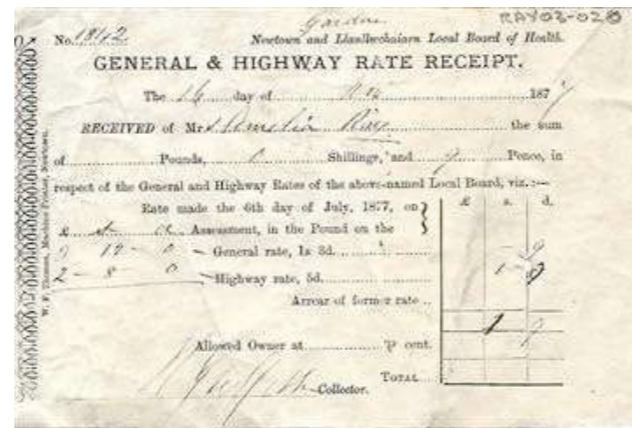 Garden RAY02-028
No. 1842 Newtown and Llanllwchaiarn Local Board of Health.
GENERAL & HIGHWAY RATE RECEIPT.
The 14 day of 187
RECEIVED of Mrs. Amelia Ray the sum
of Pounds, Shillings, and 9 Pence, in
respect of the General and Highway Rates of the above-named Local Board, viz.:—
Rate made the 6th day of July, 1877, on £ s. d.
Assessment, in the Pound on the
General rate, 1s 3d. 9
2 - 8 0 Highway rate, 5d. 1
Arrear of former rate
1 9
Allowed Owner at ℔ cent.
TOTAL
Collector.
W. F. Thomas, Machine Printer, Newtown.